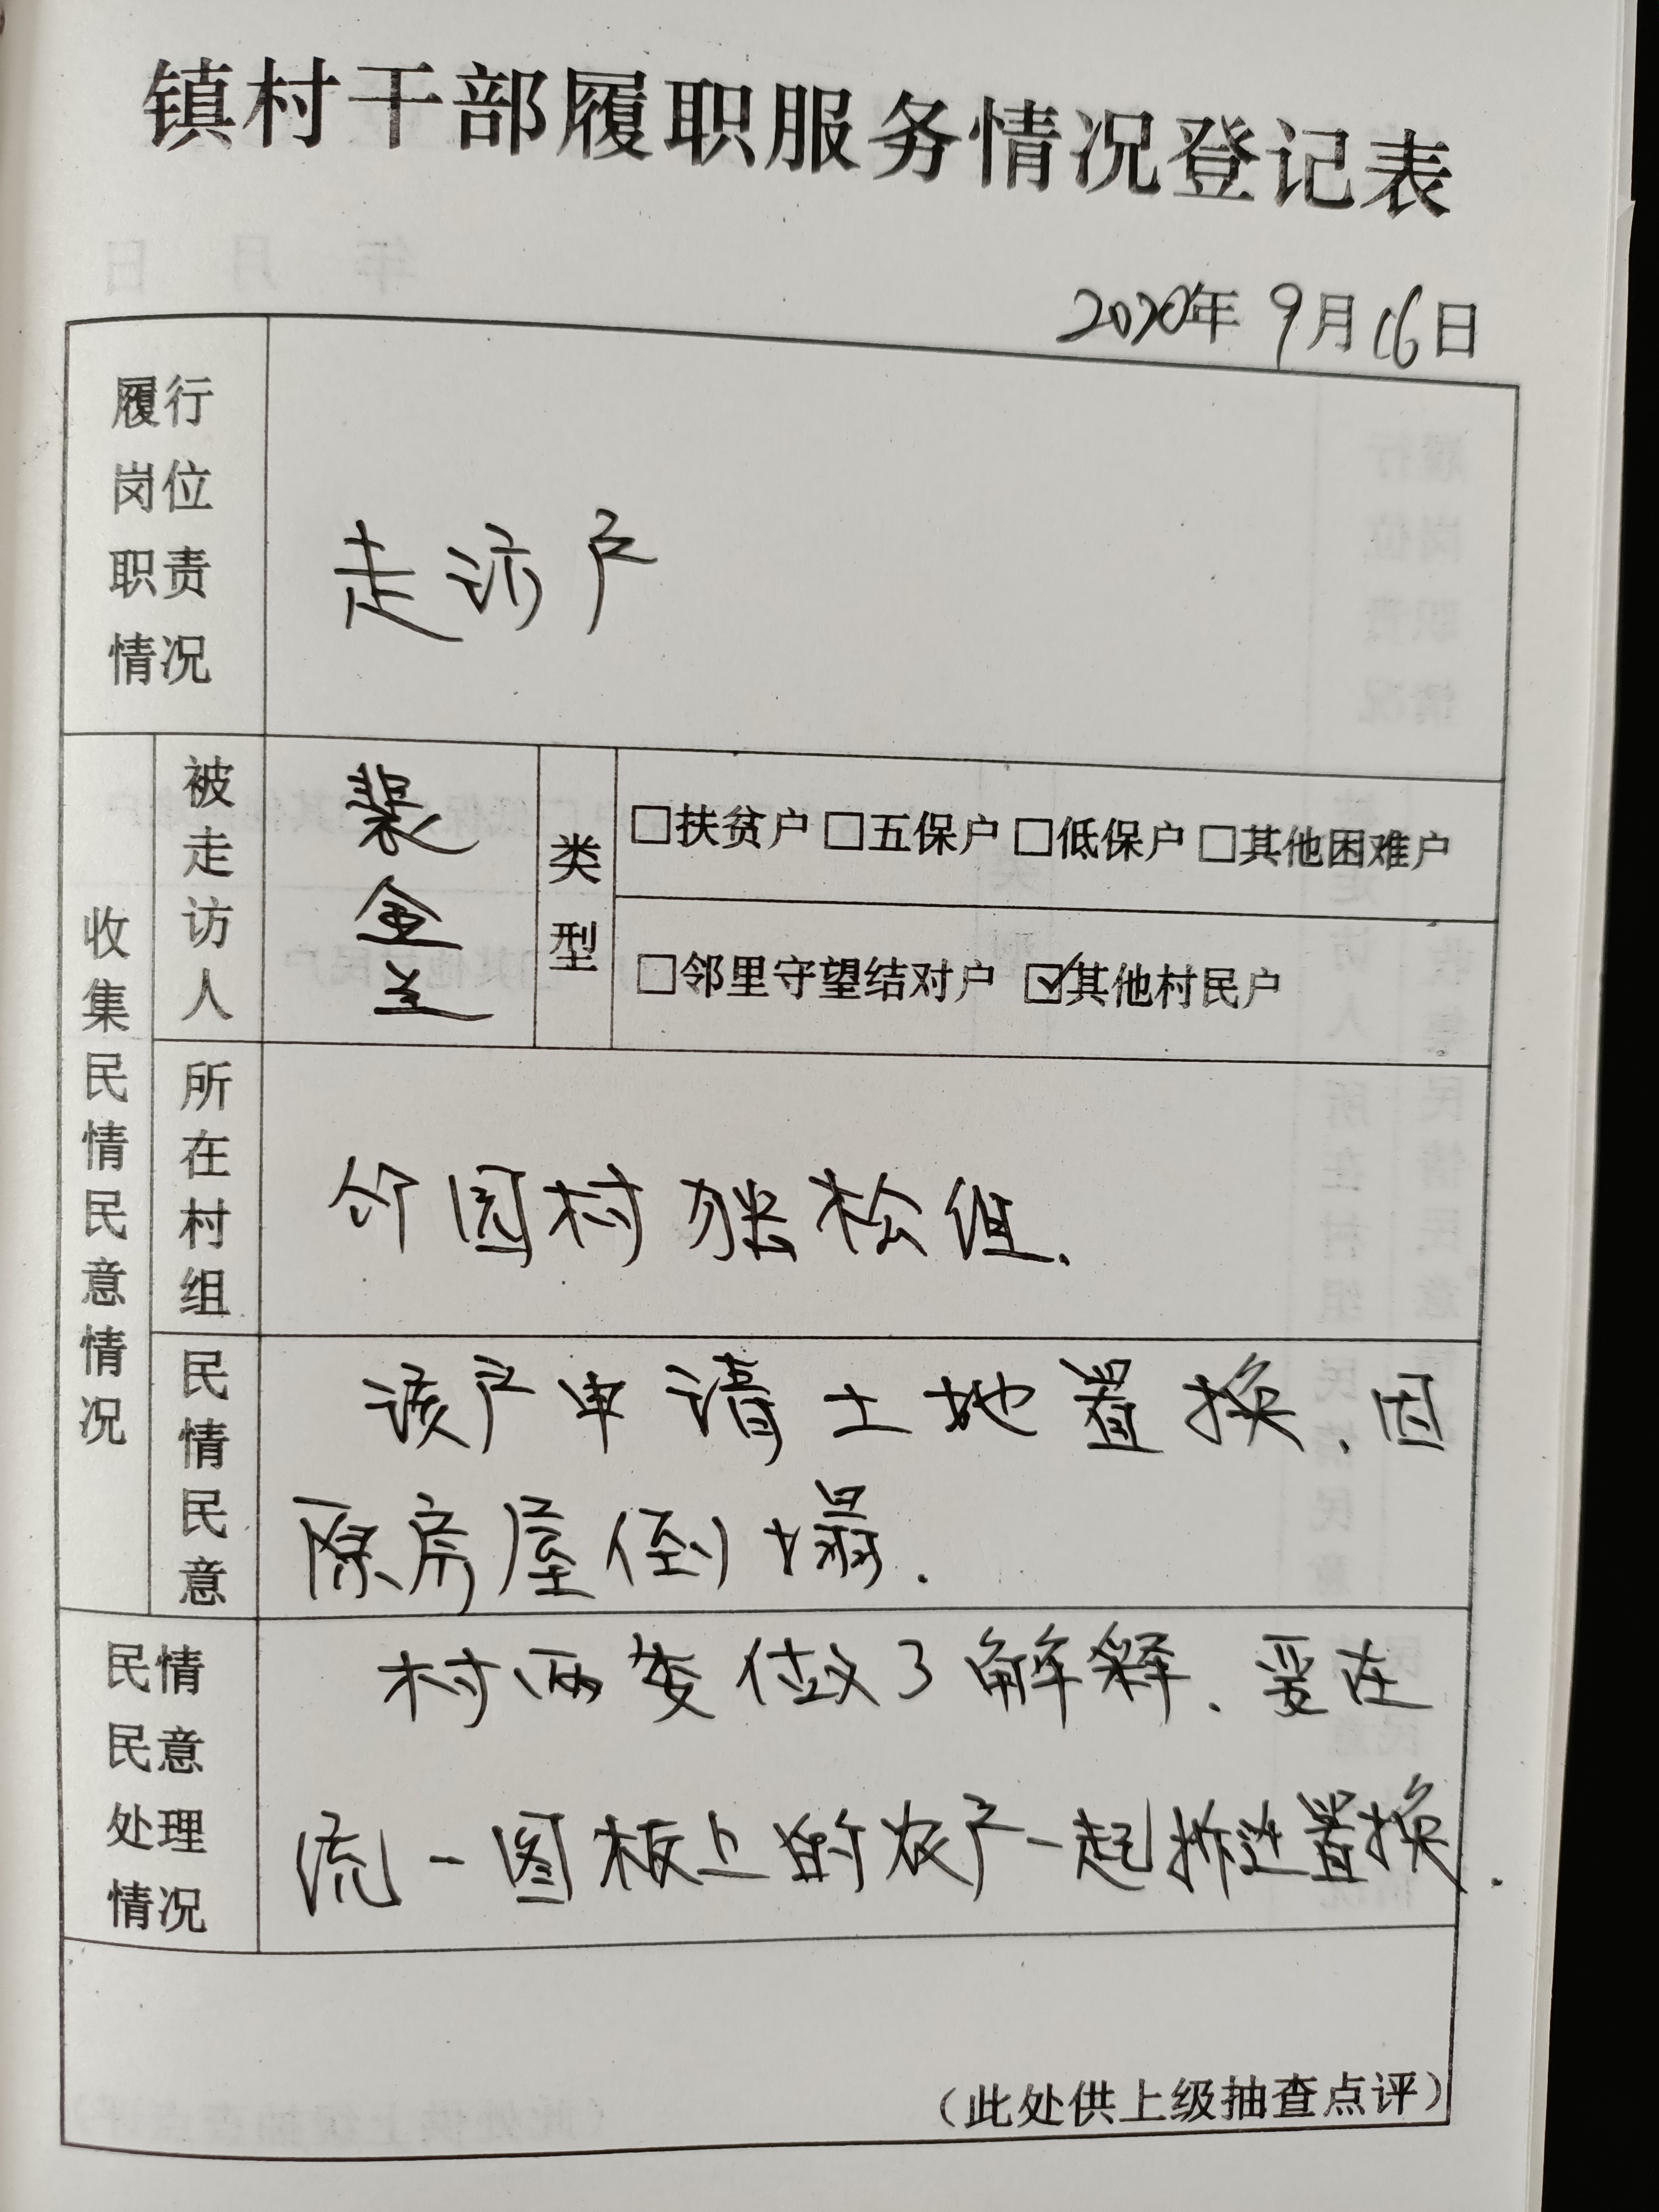 镇村干部履职服务情况登记表
2020年9月16日
履行岗位职责情况
走访户
收集民情民意情况
被走访人
裴金兰
类型
□扶贫户 □五保户 □低保户 □其他困难户
□邻里守望结对户 ☑其他村民户
所在村组
园村 松组.
民情民意
该户申请土地置换、因
原房屋倒塌.
民情民意处理情况
村两委做了解释、要在
流一图板上的农户一起拆迁置换.
(此处供上级抽查点评)